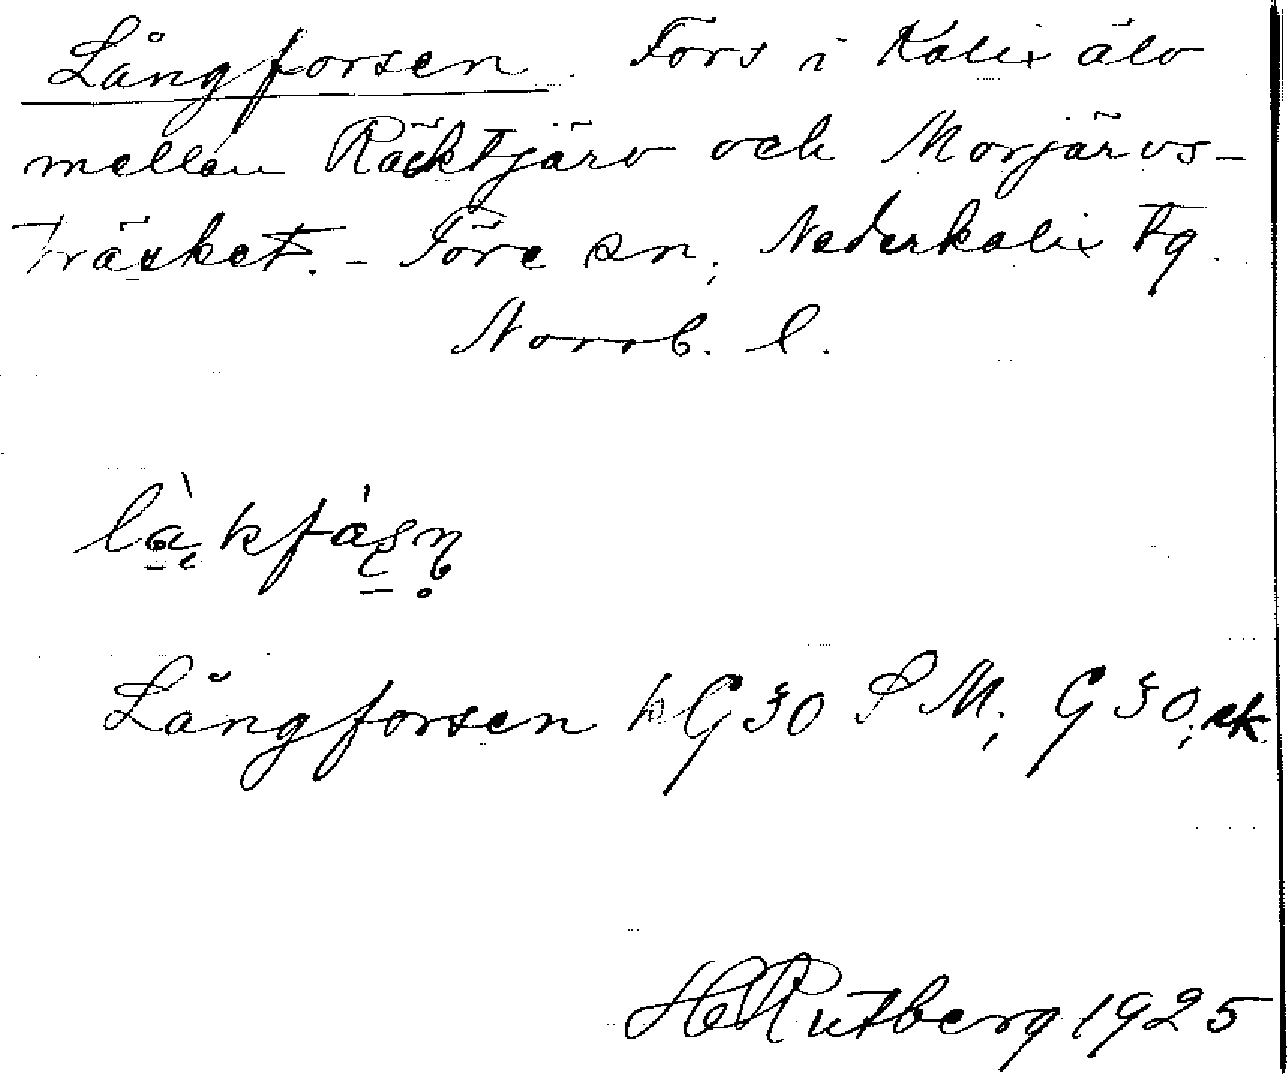 Långforsen. Fors i Kalix älv
mellan Räcktjärv och Morjärvs-
träsket. - Töre sn, Nederkalix tg.
Norrb. l.
Långforsen hG 30 SM; G 30, ek.
H Rutberg 1925